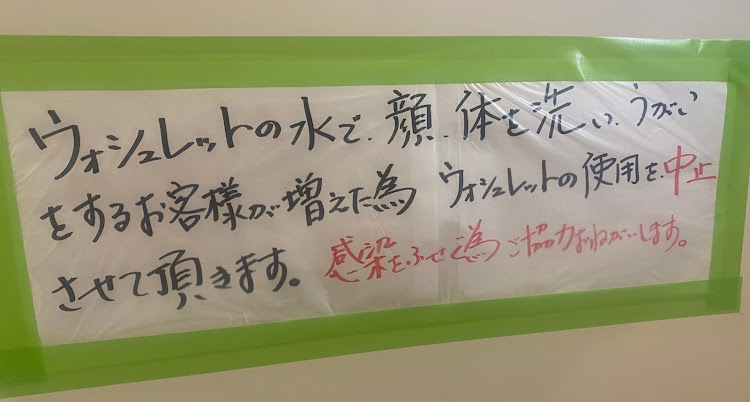 ウォシュレットの水で、顔、体を洗い、うがい
をするお客様が増えた為 ウォシュレットの使用を中止
させて頂きます。感染をふせぐ為ご協力おねがいします。